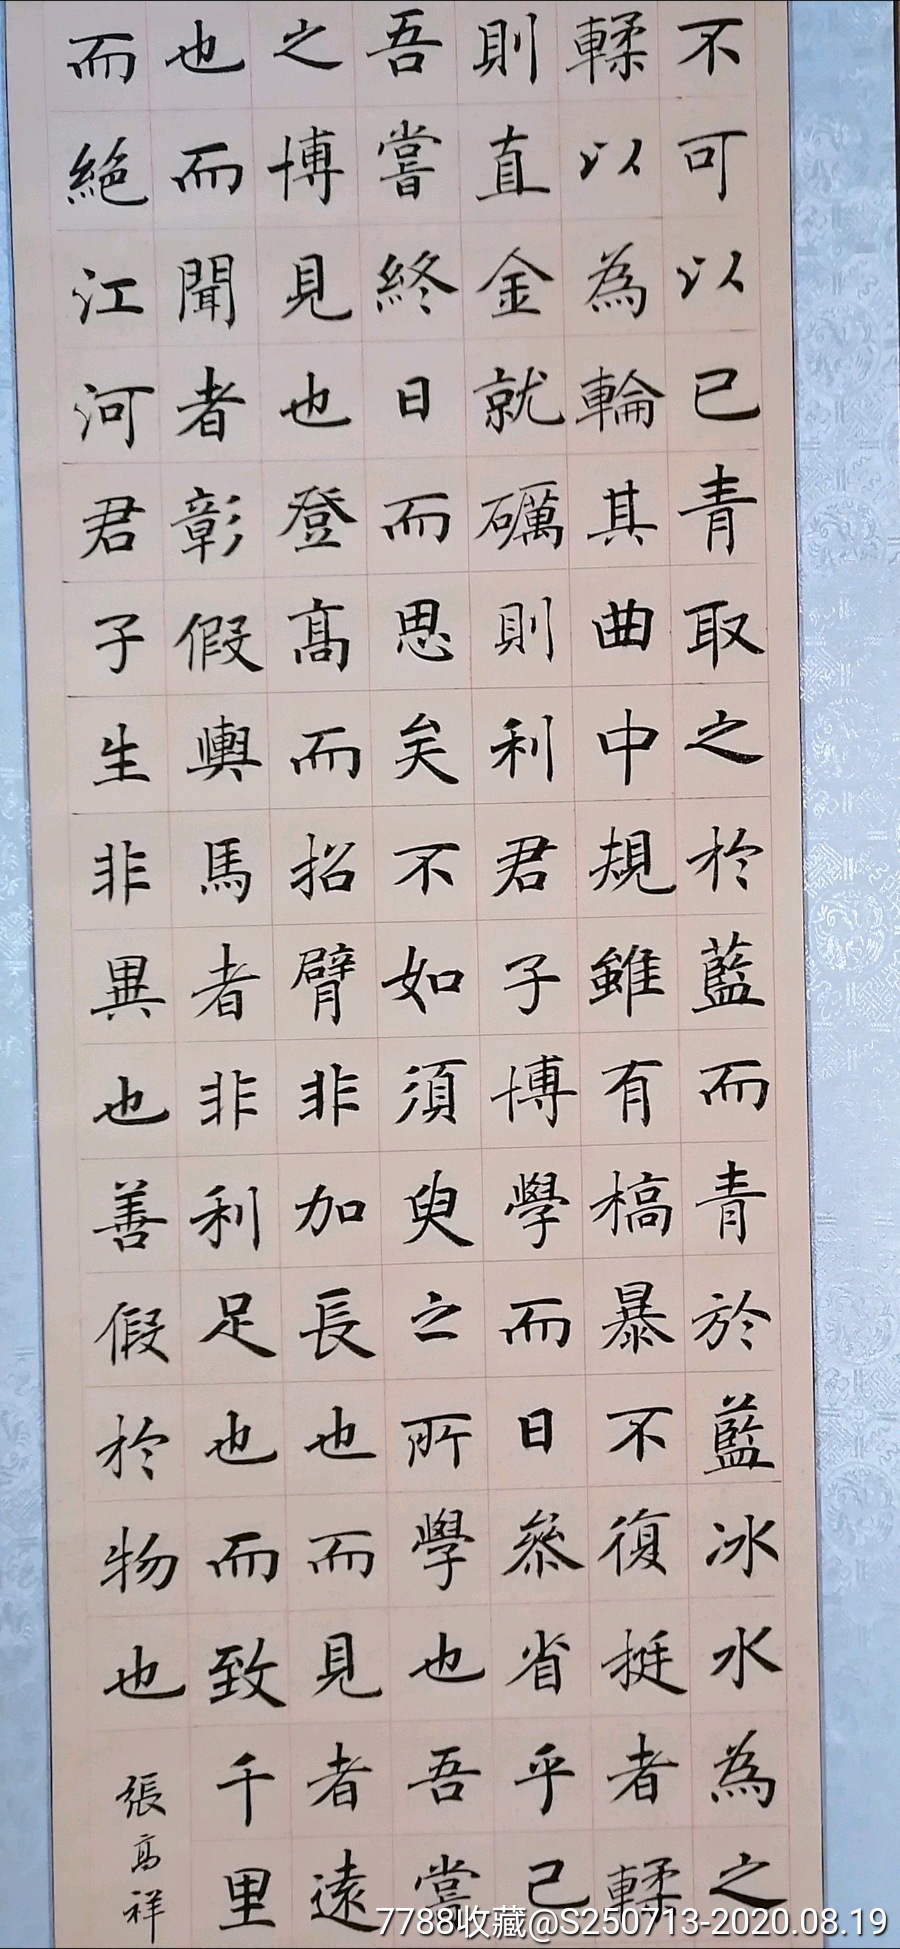 不可以已青取之於藍而青於藍冰水為之
輮以為輪其曲中規雖有槁暴不復挺者輮
則直金就礪則利君子博學而日叅省乎己
吾嘗終日而思矣不如須臾之所學也吾嘗
之博見也登高而招臂非加長也而見者遠
也而聞者彰假輿馬者非利足也而致千里
而絕江河君子生非異也善假於物也
張高祥
7788收藏@S250713-2020.08.19